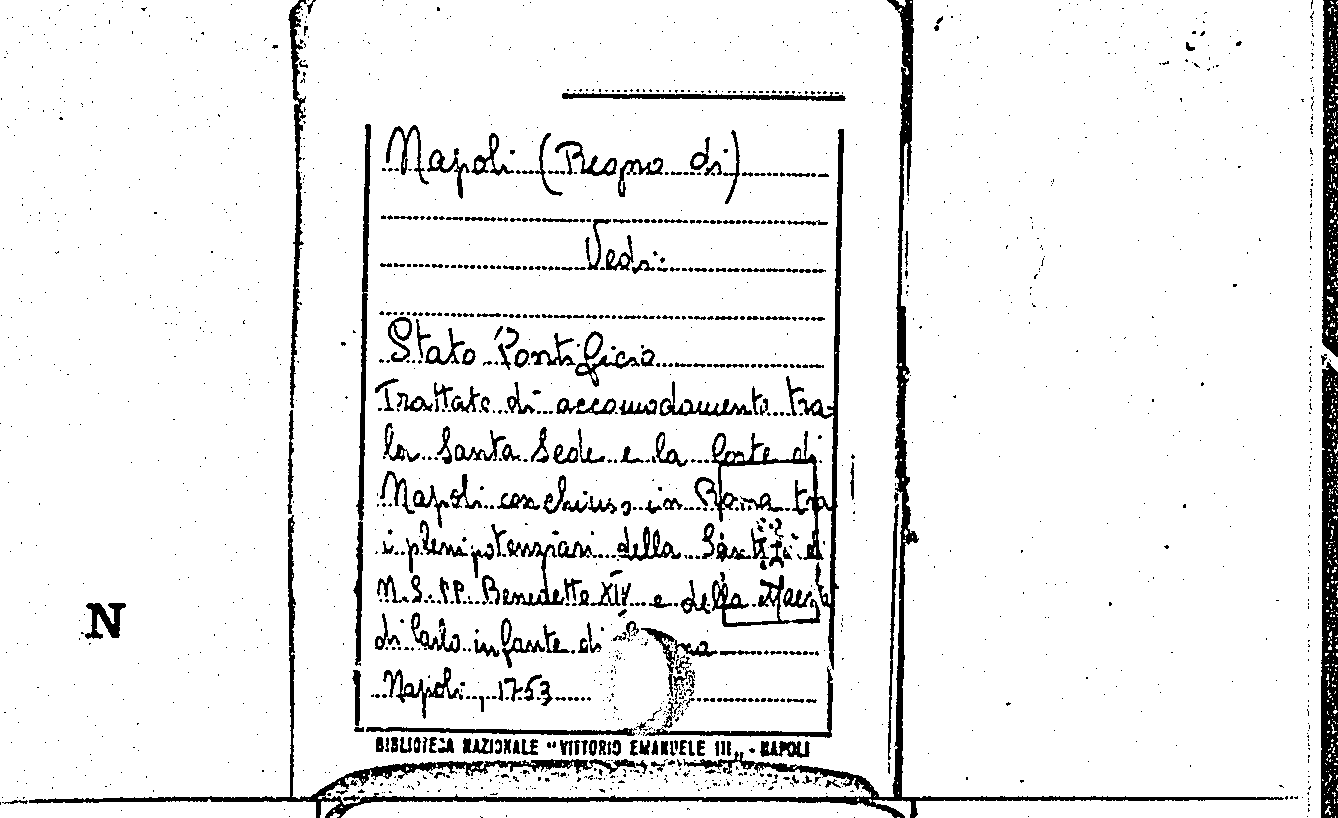 Napoli (Regno di)
Vedi:
Stato Pontificio
Trattato di accomodamento tra
la Santa Sede e la Corte di
Napoli conchiuso in Roma tra
i plenipotenziari della Santità di
M.S. PP. Benedetto XIV e della Maestà
di Carlo infante di
Napoli, 1753
BIBLIOTECA NAZIONALE "VITTORIO EMANUELE III„ - NAPOLI
N